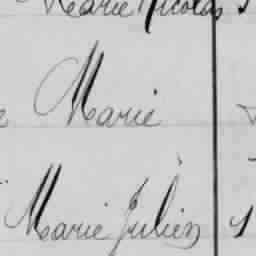 Marie Nicolas
Marie
Marie Julien